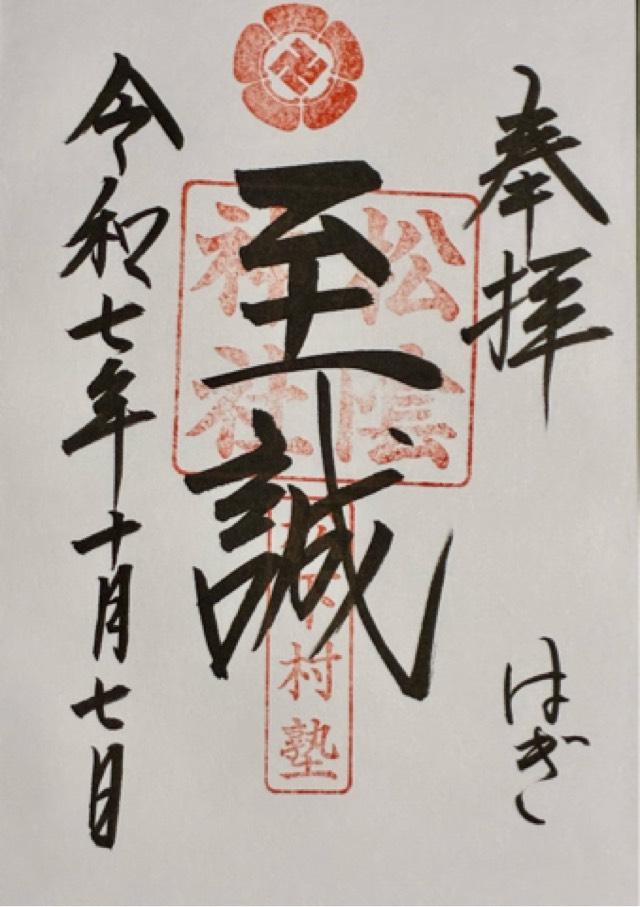 奉拝
はぎ
至誠
松陰神社
松下村塾
令和七年十月七日